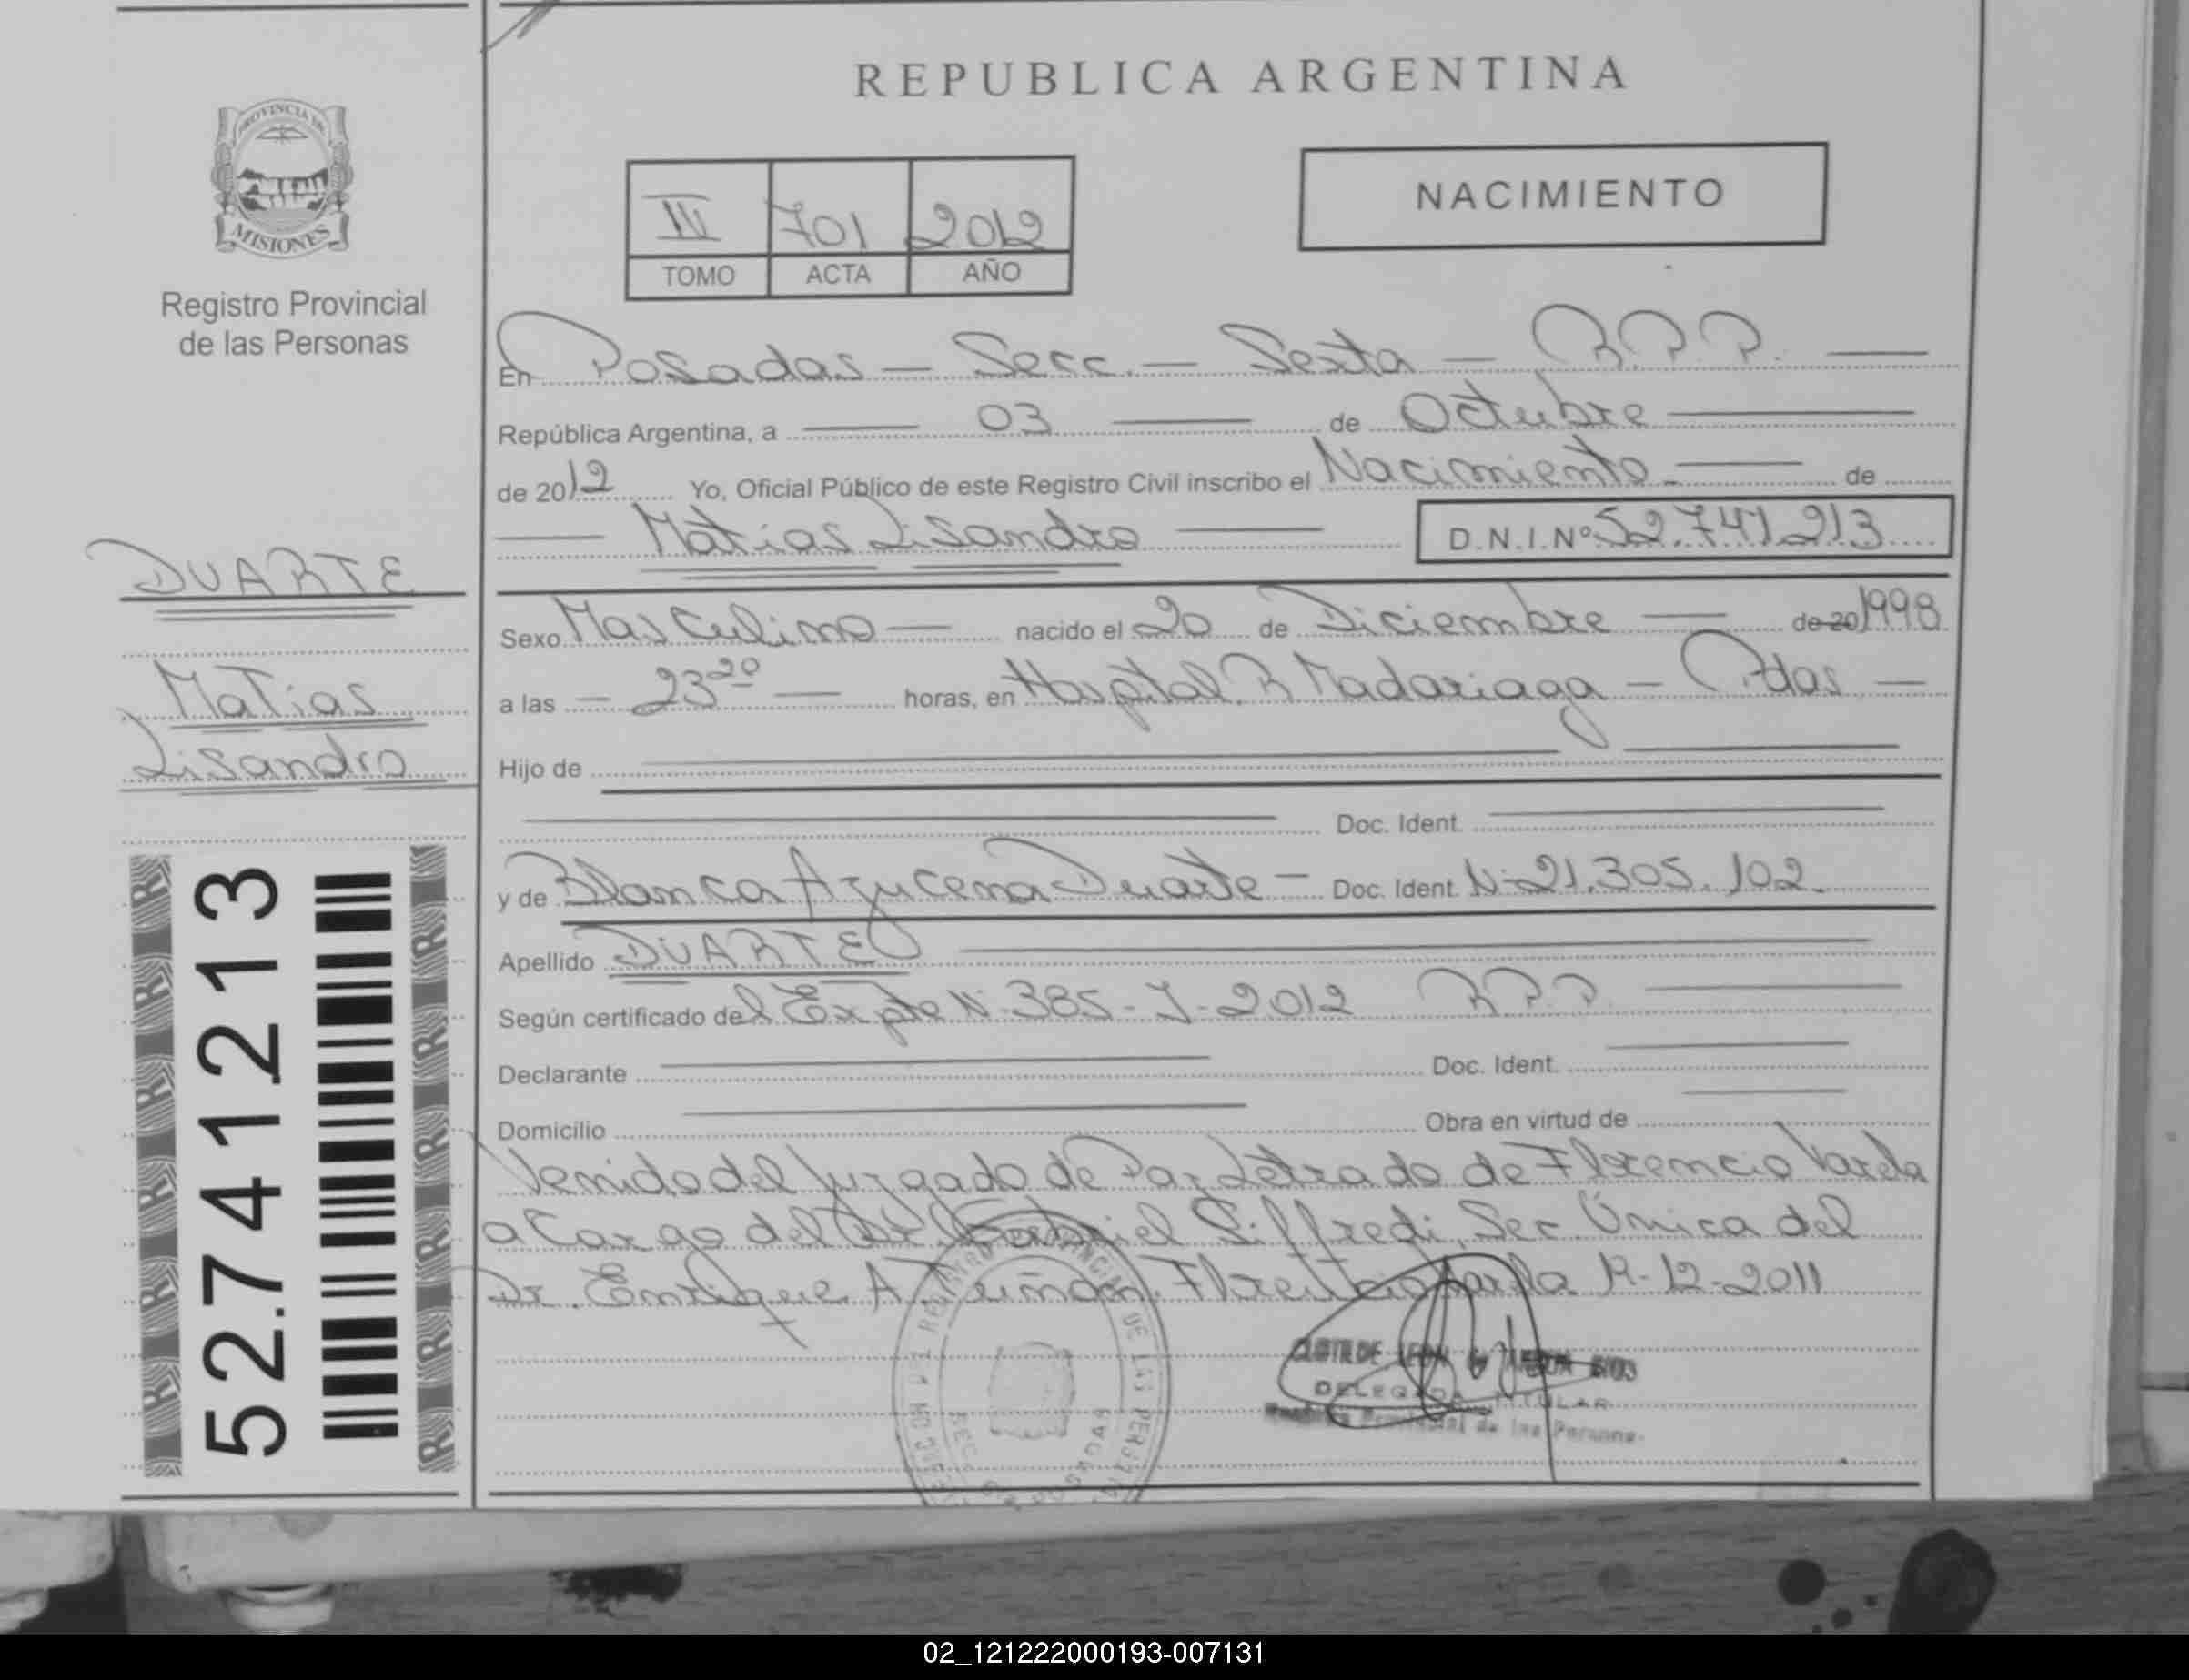 REPUBLICA ARGENTINA
PROVINCIA DE
MISIONES
Registro Provincial
de las Personas
DUARTE
Matias
Lisandro
52.741213
NACIMIENTO
IV 701 2012
TOMO ACTA AÑO
En Posadas - Secc. - Sexta - R.P.P.
República Argentina, a 03 de Octubre
de 2012 Yo, Oficial Público de este Registro Civil inscribo el Nacimiento de
Matias Lisandro D.N.I.Nº 52.741.213
Sexo Masculino nacido el 20 de Diciembre de 20 1998
a las 23 20 horas, en Hospital R Madariaga - Pdas -
Hijo de
Doc. Ident.
y de Blanca Azucena Duarte - Doc. Ident. Nº 21.305.102.
Apellido DUARTE
Según certificado del Expte Nº 385-J-2012 R.P.P.
Declarante Doc. Ident.
Domicilio Obra en virtud de
Venido del Juzgado de Paz Letrado de Florencio Varela
a Cargo del Dr. Gabriel Siffredi, Sec. Única del
Dr. Enrique A. Florencio Varela 12-2011
DE LAS
POSADAS
DELEGADA TITULAR
Provincial de las Persona
02_121222000193-007131